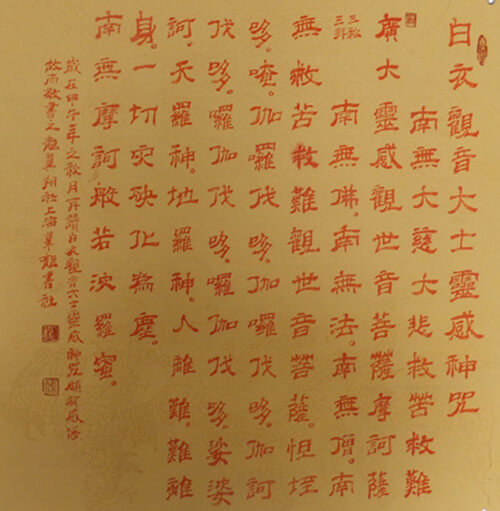 白衣觀音大士靈感神咒
南無大慈大悲救苦救難
廣大靈感觀世音菩薩摩訶薩
三稱
三拜
南無佛。南無法。南無僧。南
無救苦救難觀世音菩薩。怛垤
哆。唵。伽囉伐哆。伽囉伐哆。伽訶
伐哆。囉伽伐哆。囉伽伐哆。娑婆
訶。天羅神。地羅神。人離難。難離
身。一切灾殃化為塵。
南無摩訶般若波羅蜜。
歲在甲午年之秋月拜讀白衣觀音大士靈感神咒頗有感悟
故而敬書之龍翔於上海龍書社